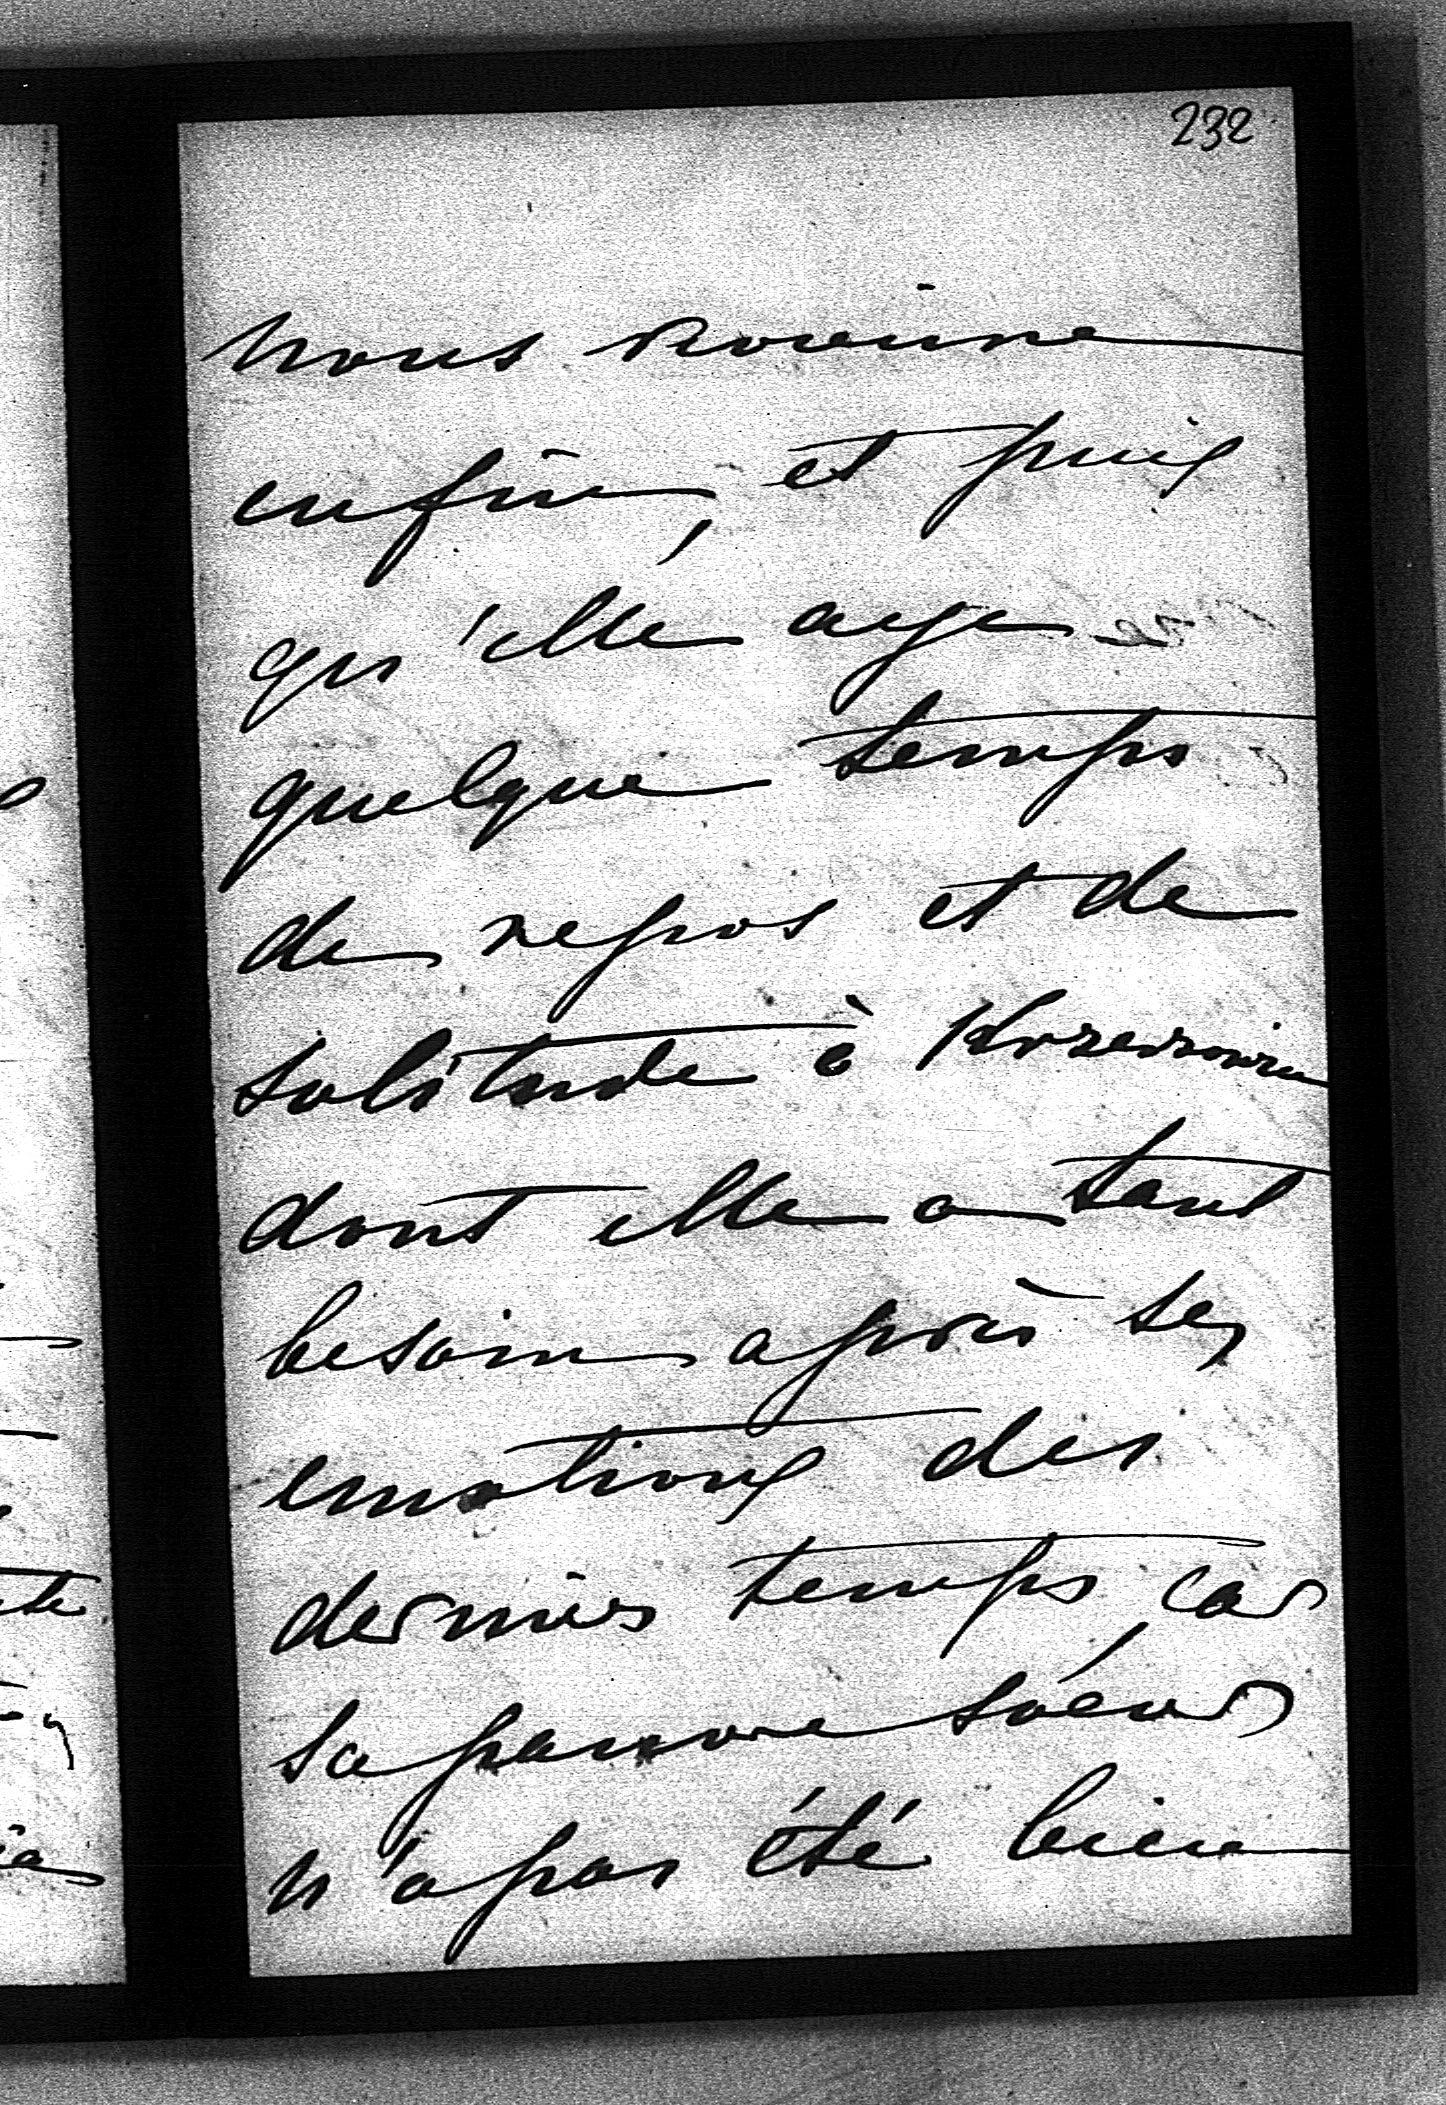 232
nous réunira
enfin, et puis
qu'elle aye
quelque temps
de repos et de
solitude à Krzeszowice
dont elle a tant
besoin après ses
emotions des
derniers temps, car
sa pauvre soeur
n'a pas été bien